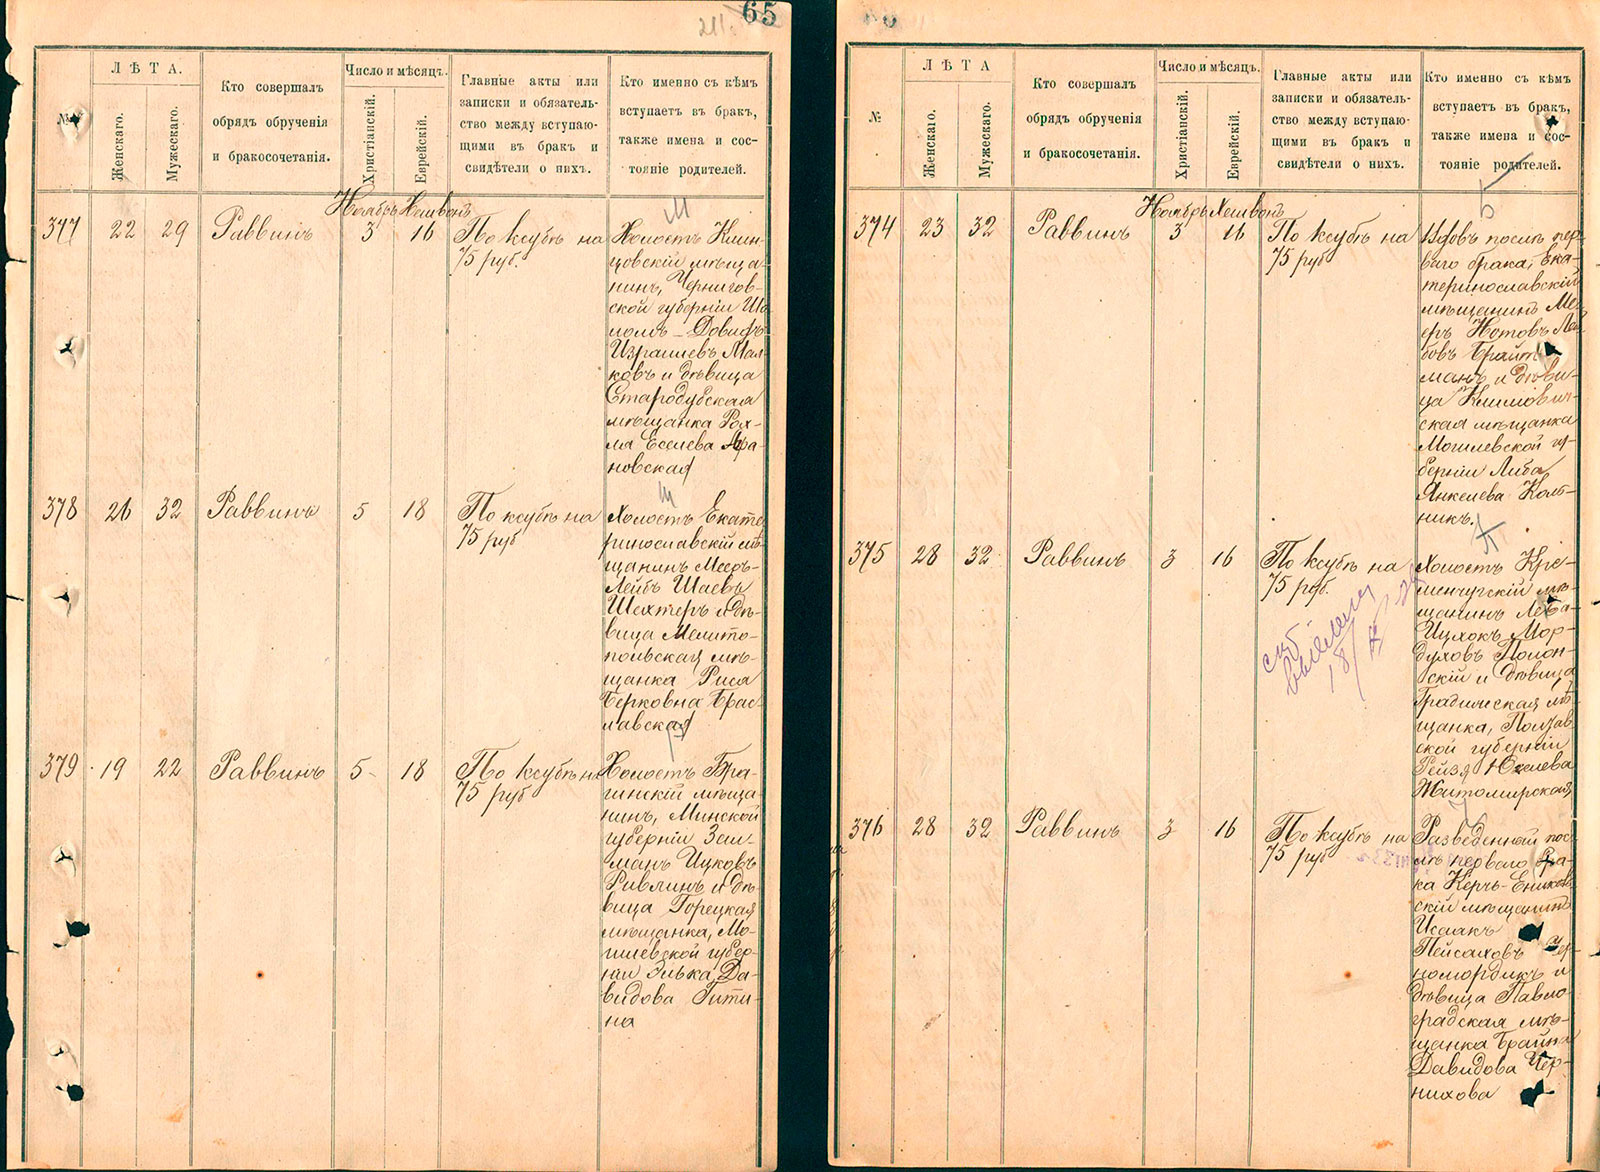 211. 65
№
ЛѢТА.
Женскаго.
Мужескаго.
Кто совершалъ
обрядъ обрученія
и бракосочетанія.
Число и мѣсяцъ.
Христіанскій.
Еврейскій.
Главные акты или
записки и обязатель-
ство между вступаю-
щими въ бракъ и
свидѣтели о нихъ.
Кто именно съ кѣмъ
вступаетъ въ бракъ,
также имена и сос-
тояніе родителей.
Ноябрь Хешвонъ
377 22 29 Раввинъ 3 16
По ксубѣ на
75 руб.
Холостъ Клин-
цовскій мѣща-
нинъ, Чернигов-
ской губерніи Шо-
ломъ-Довидъ
Израилевъ Мал-
ковъ и дѣвица
Стародубская
мѣщанка Рох-
ля Еселева Ара-
новская
378 26 32 Раввинъ 5 18
По ксубѣ на
75 руб
Холостъ Екате-
ринославскій мѣ-
щанинъ Мееръ-
Лейбъ Шаевъ
Шехтеръ и дѣ-
вица Мелито-
польская мѣ-
щанка Рися
Берковна Брас-
лавская
379 19 22 Раввинъ 5 18
По ксубѣ на
75 руб
Холостъ Бра-
гинскій мѣща-
нинъ, Минской
губерніи Зал-
манъ Ицковъ
Ривлинъ и дѣ-
вица Горецкая
мѣщанка, Мо-
гилевской губер-
ніи Элька Да-
видова Гити-
на
№
ЛѢТА
Женскаго.
Мужескаго.
Кто совершалъ
обрядъ обрученія
и бракосочетанія.
Число и мѣсяцъ.
Христіанскій.
Еврейскій.
Главные акты или
записки и обязатель-
ство между вступаю-
щими въ бракъ и
свидѣтели о нихъ.
Кто именно съ кѣмъ
вступаетъ въ бракъ,
также имена и сос-
тояніе родителей.
Ноябрь Хешвонъ
374 23 32 Раввинъ 3 16
По ксубѣ на
75 руб
Вдовъ послѣ пер-
ваго брака, Ека-
теринославскій
мѣщанинъ Ме-
еръ Нотовъ Лей-
бовъ Брайт-
манъ и дѣви-
ца Климович-
ская мѣщанка
Могилевской гу-
берніи Либа
Янкелева Коль-
никъ.
375 28 32 Раввинъ 3 16
По ксубѣ на
75 руб.
Холостъ Кре-
менчугскій мѣ-
щанинъ Лейба-
Ицхокъ Мор-
духовъ Полон-
скій и дѣвица
Градижская мѣ-
щанка, Полтав-
ской губерніи
Рейзя Юхелева
Житомирская
376 28 32 Раввинъ 3 16
По ксубѣ на
75 руб
Разведенный пос-
лѣ перваго бра-
ка Керчь-Еников-
скій мѣщанинъ
Исаакъ
Пейсаховъ Чер-
номордикъ и
дѣвица Павло-
градская мѣ-
щанка Брайна
Давидова Чер-
нихова